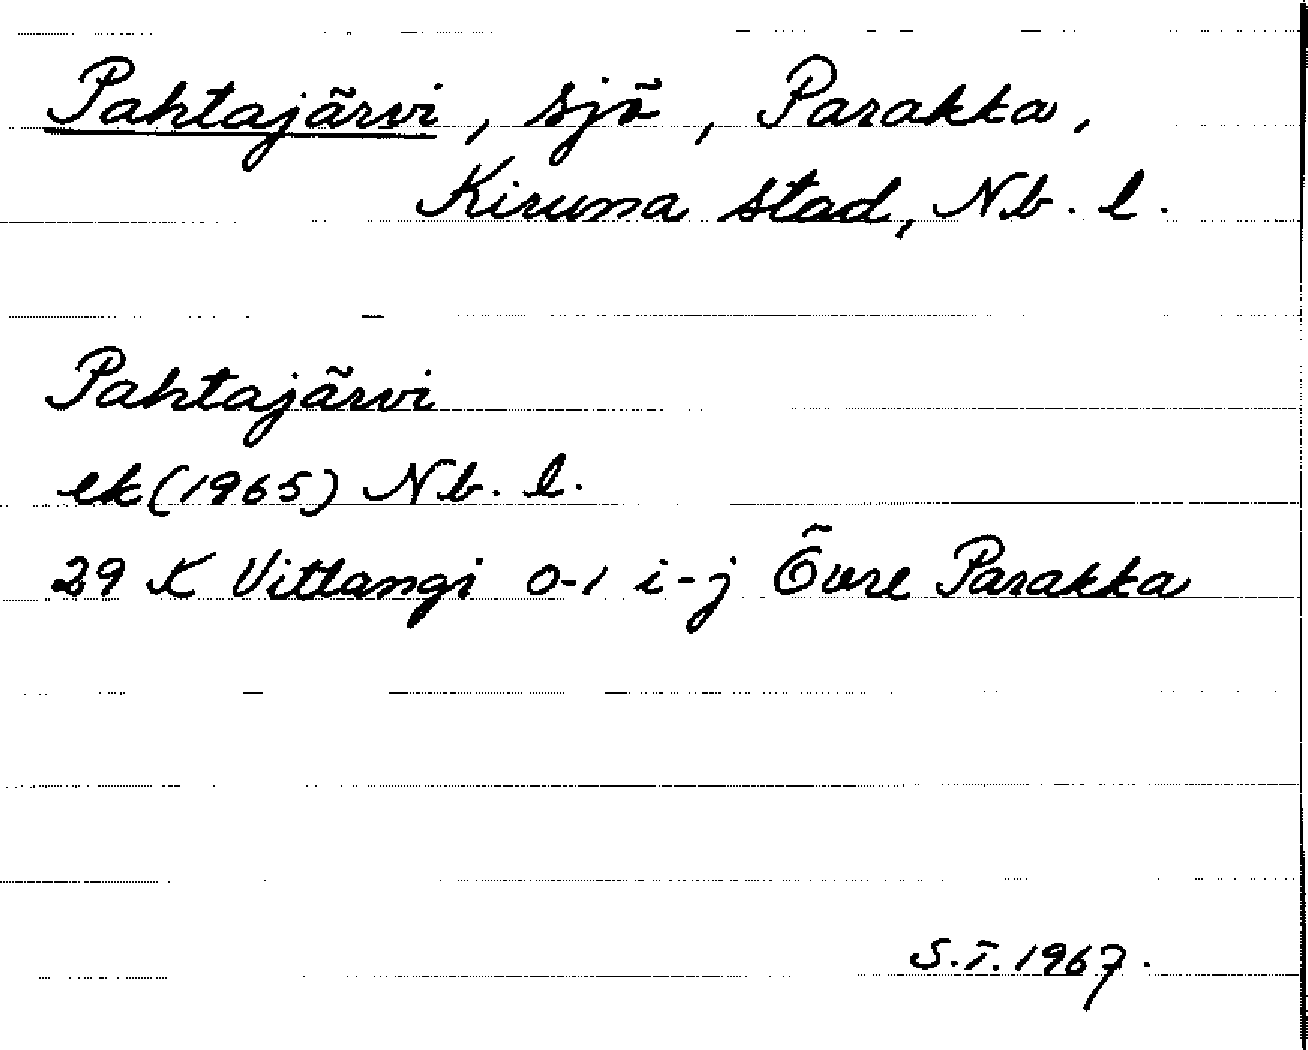 Pahtajärvi, sjö, Parakka,
Kiruna stad, Nb. l.
Pahtajärvi
ek (1965) Nb. l.
29 K Vittangi 0-1 i-j Övre Parakka
S.T. 1967.